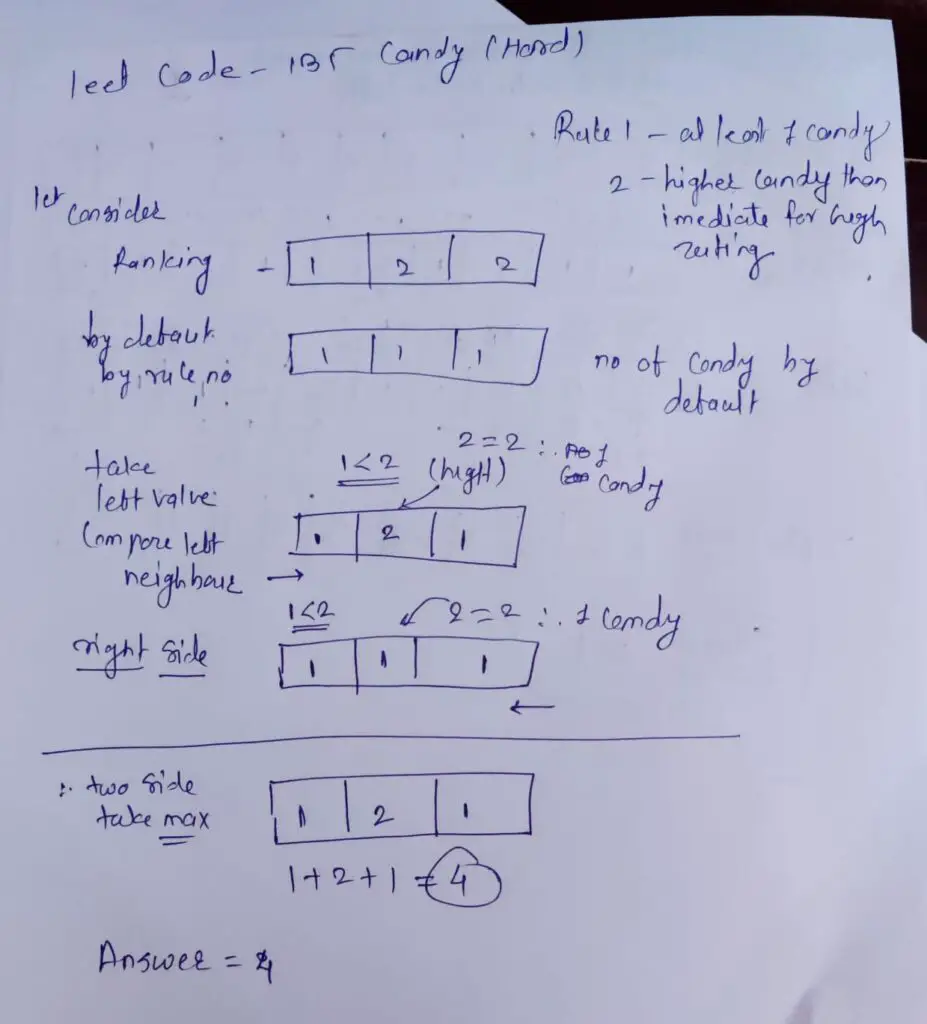 leet Code - 135 Candy (Hard)
Rule 1 - at least 1 candy
2 - higher candy than
imediate for high
rating
let consider
Ranking - 1 2 2
by default
by, rule, no
1.
1 1 1
no of candy by
default
take
left value
Compare left
neighbour →
1<2 (high) 2=2 ∴ 1
candy
1 2 1
right side
1<2 2=2 ∴ 1 candy
1 1 1
←
∴ two side
take max
1 2 1
1+2+1=4
Answer = 4